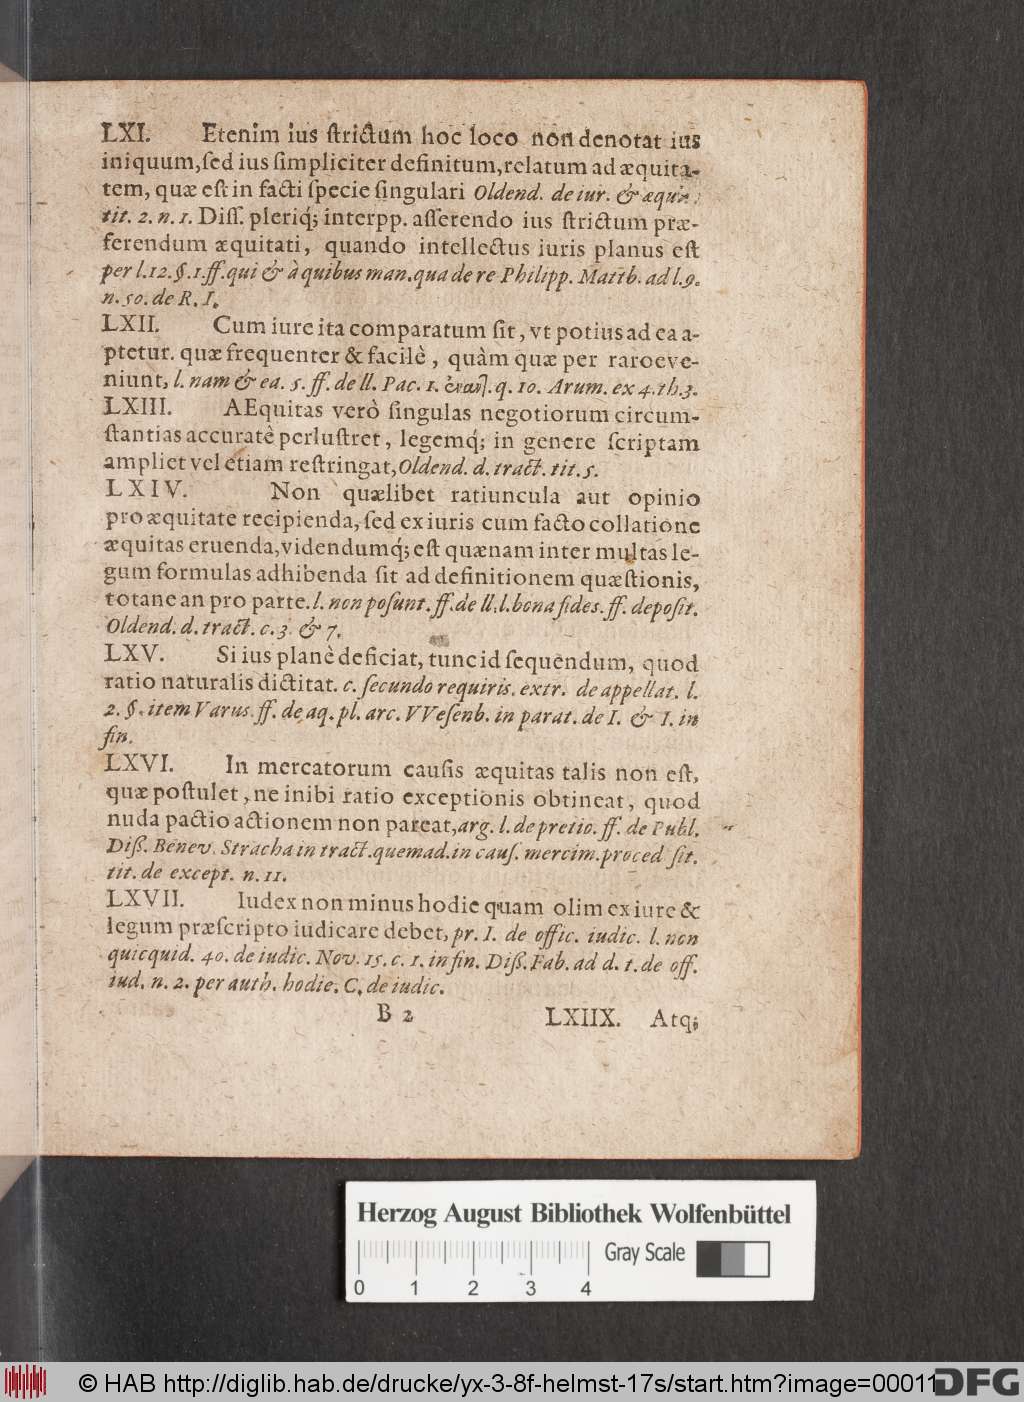 LXI. Etenim ius ſtrictum hoc loco non denotat ius
iniquum, ſed ius ſimpliciter definitum, relatum ad æquita-
tem, quæ eſt in facti ſpecie ſingulari Oldend. de iur. & æqui
tit. 2. n. 1. Diſſ. pleriq; interpp. aſſerendo ius ſtrictum præ-
ferendum æquitati, quando intellectus iuris planus eſt
per l. 12. §. 1. ff. qui & à quibus man. qua de re Philipp. Matth. ad l. 9.
n. 50. de R. I.
LXII. Cum iure ita comparatum ſit, vt potius ad ea a-
ptetur. quæ frequenter & facilè, quàm quæ per raro eve-
niunt, l. nam & ea. 5. ff. de ll. Pac. 1. q. 10. Arum. ex 4. th. 3.
LXIII. AEquitas verò ſingulas negotiorum circum-
ſtantias accuratè perluſtret, legemq́; in genere ſcriptam
ampliet vel etiam reſtringat, Oldend. d. tract. tit. 5.
LXIV. Non quælibet ratiuncula aut opinio
pro æquitate recipienda, ſed ex iuris cum facto collatione
æquitas eruenda, videndumq́; eſt quænam inter multas le-
gum formulas adhibenda ſit ad definitionem quæſtionis,
totane an pro parte. l. non poſunt. ff. de ll. l. bona fides. ff. depoſit.
Oldend. d. tract. c. 3. & 7.
LXV. Si ius planè deficiat, tunc id ſequendum, quod
ratio naturalis dictitat. c. ſecundo requiris. extr. de appellat. l.
2. §. item Varus. ff. de aq. pl. arc. VVeſenb. in parat. de I. & I. in
fin.
LXVI. In mercatorum cauſis æquitas talis non eſt,
quæ poſtulet, ne inibi ratio exceptionis obtineat, quod
nuda pactio actionem non pareat, arg. l. de pretio. ff. de Publ.
Diß. Benev. Stracha in tract. quemad. in cauſ. mercim. proced ſit.
tit. de except. n. 11.
LXVII. Iudex non minus hodie quam olim ex iure &
legum præſcripto iudicare debet, pr. I. de offic. iudic. l. non
quicquid. 40. de iudic. Nov. 15. c. 1. in fin. Diß. Fab. ad d. t. de off.
iud. n. 2. per auth. hodie. C. de iudic.
B 2 LXIIX. Atq;
Herzog August Bibliothek Wolfenbüttel
Gray Scale
0 1 2 3 4
© HAB http://diglib.hab.de/drucke/yx-3-8f-helmst-17s/start.htm?image=00011
DFG